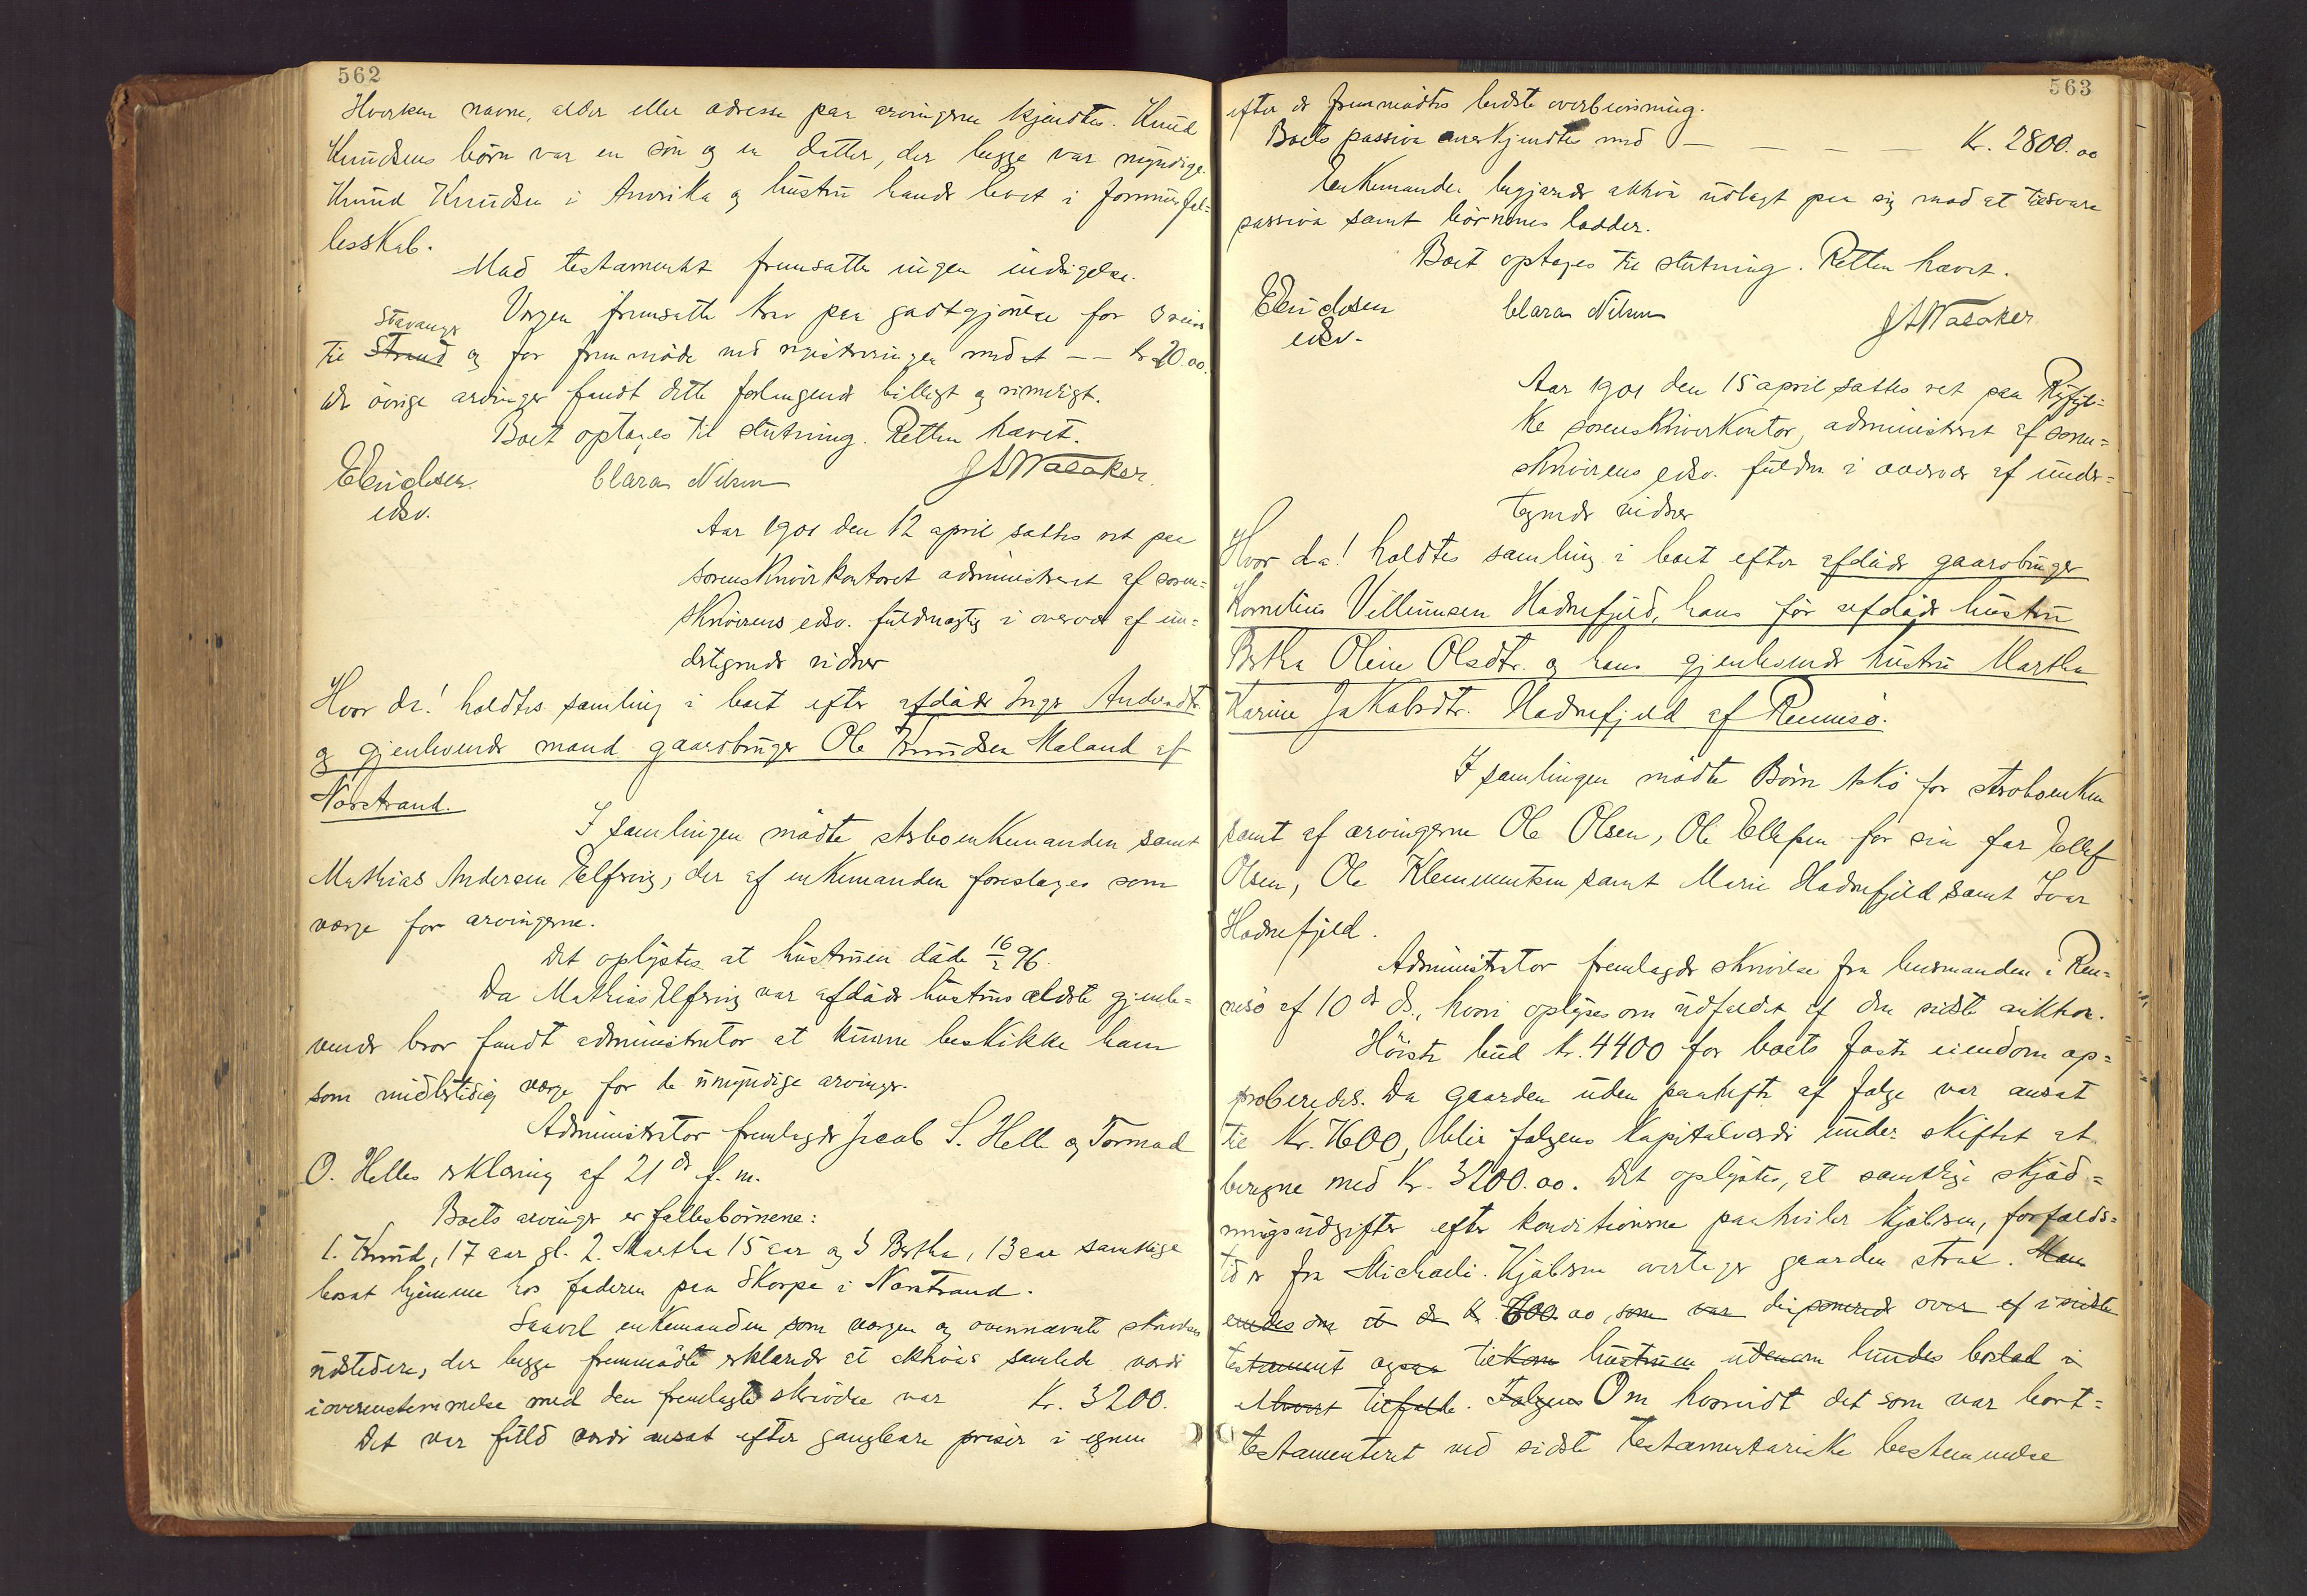 562
Hverken navne, alder eller adresse paa arvingerne kjendtes. Knud
Knudsens børn var en søn og en datter, der begge var myndige.
Knud Knudsen i Amerika og hustru havde levet i formuesfæl=
lesskab.
Mod testamentet fremsattes ingen indsigelse.
Værgen fremsatte krav paa godtgjørelse for reise
Stavanger
til Strand og for fremmøde ved registreringen med et — — kr 20.00.
De øvrige arvinger fandt dette forlangende billigt og rimeligt.
Boet optages til slutning. Retten hævet.
Elendosen Clara Nilsen J A Wasaker.
edsv.
Aar 1901 den 12 april sattes ret paa
sorenskriverkontoret administreret af soren=
skriverens edsv. fuldmægtig i overvær af un=
dertegnede vidner
Hvor da! holdtes samling i boet efter afdøde Inger Andersdtr.
og gjenlevende mand gaardbruger Ole Knudsen Maland af
Norstrand.
I samlingen mødte sterboenkemanden samt
Mathias Andersen Elfring, der af enkemanden foreslages som
værge for arvingerne.
Det oplystes at hustruen døde 16/2 96.
Da Mathias Elfring var afdøde hustrus ældste gjenle=
vende bror fandt administrator at kunne beskikke ham
som midlertidig værge for de umyndige arvinger.
Administrator fremlagde Jacob S. Helle og Tormod
O. Helles erklæring af 21de f. m.
Boets arvinger er fællesbørnene:
1. Knud, 17 aar gl. 2. Martha 15 aar og 3 Bertha, 13 aar samtlige
bosat hjemme hos faderen paa Skorpe i Norstrand.
Saavel enkemanden som værgen og ovennævnte skrivelses
udstedere, der begge fremmødte erklærede at aktivas samlede værdi
i overensstemmelse med den fremlagte skrivelse var Kr. 3200.
Det var fuld værdi ansat efter gangbare priser i egnen
563
efter de fremmødtes bedste overbevisning.
Boets passiva anerkjendtes med — — — — — Kr. 2800.00
Enkemanden begjærede aktiva udlagt paa sig mod at tilsvare
passiva samt børnenes lodder.
Boet optages til slutning. Retten hævet.
Elendosen Clara Nilsen J A Wasaker
edsv.
Aar 1901 den 15 april sattes ret paa Ryfyl=
ke sorenskriverkontor, administreret af soren=
skriverens edsv. fuldm. i overvær af under=
tegnede vidner
Hvor da! holdtes samling i boet efter afdøde gaardbruger
Kornelius Villumsen Hadnefjeld, hans før afdøde hustru
Bertha Oline Olsdtr. og hans gjenlevende hustru Martha
Karine Jakobsdtr. Hadnefjeld af Rennesø.
I samlingen mødte Børn Askø for sterboenken
samt af arvingerne Ole Olsen, Ole Ellefsen for sin far Ellef
Olsen, Ole Klemmentsen samt Marie Hadnefjeld samt Ivar
Hadnefjeld.
Administrator fremlagde skrivelse fra lensmanden i Ren=
nesø af 10de ds., hvori oplyses om udfaldet af den sidste auktion.
Høieste bud kr. 4400 for boets faste eiendom ap=
proberedes. Da gaarden uden paahefte af følge var ansat
til Kr. 7600, blir følgens kapitalværdi under skiftet at
beregne med Kr. 3200.00. Det oplystes, at samtlige skjød=
ningsudgifter efter konditionerne paahviler kjøberen, forfalds=
tid er fra Michaeli. Kjøberen overtager gaarden strax. Man
enedes om at de kr 600.00, som var disponeret over ef i sidste
testament ogsaa tilkom hustruen udenom hendes boslod i
tilfalde. Følgens Om hvorvidt det som var bort=
testamenteret ved sidste testamentariske bestemmelse